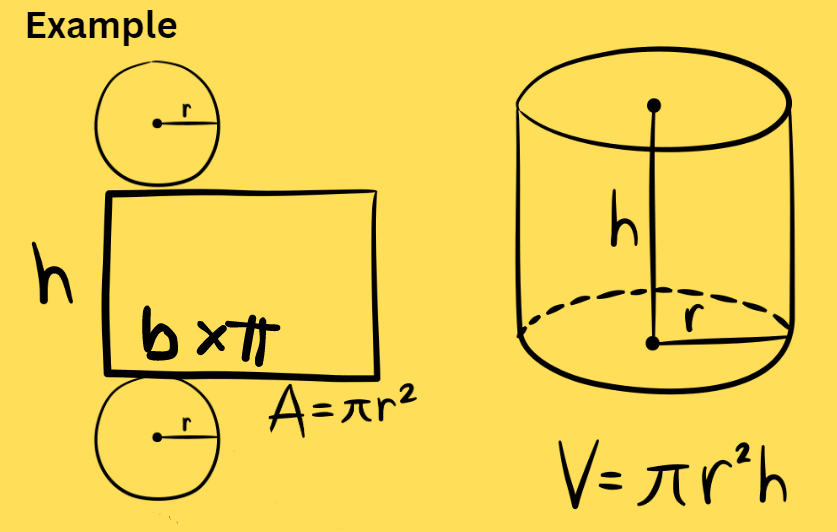 Example
r
h
b × π
r
A = πr²
h
r
V = πr²h